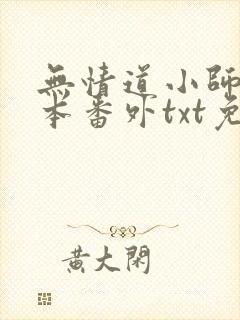 無情道小師
本番外txt免
黃大閑